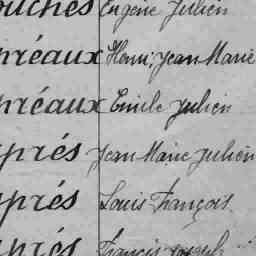 ouches Eugène Julien
préaux Henri, Jean Marie
préaux Emile Julien
prés Jean Marie Julien
prés Louis François
prés Francis Joseph